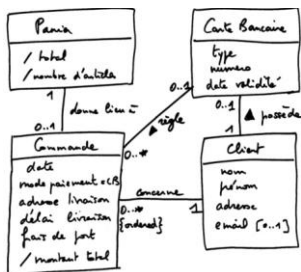 Panier
/ total
/ nombre d'articles
1
donne lieu à
0..1
Commande
date
mode paiement = CB
adresse livraison
délai livraison
frais de port
/ montant total
Carte Bancaire
type
numero
date validité
0..1
règle
0..*
0..1
possède
1
Client
nom
prénom
adresse
email [0..1]
concerne
0..*
{ordered}
1